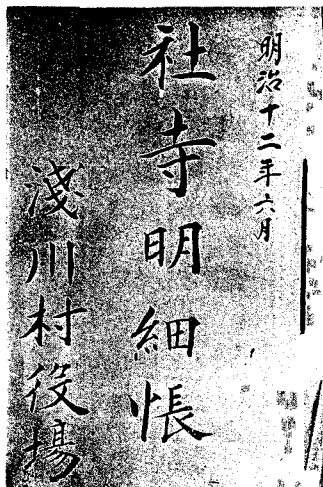 明治十二年六月
社寺明細帳
淺川村役場